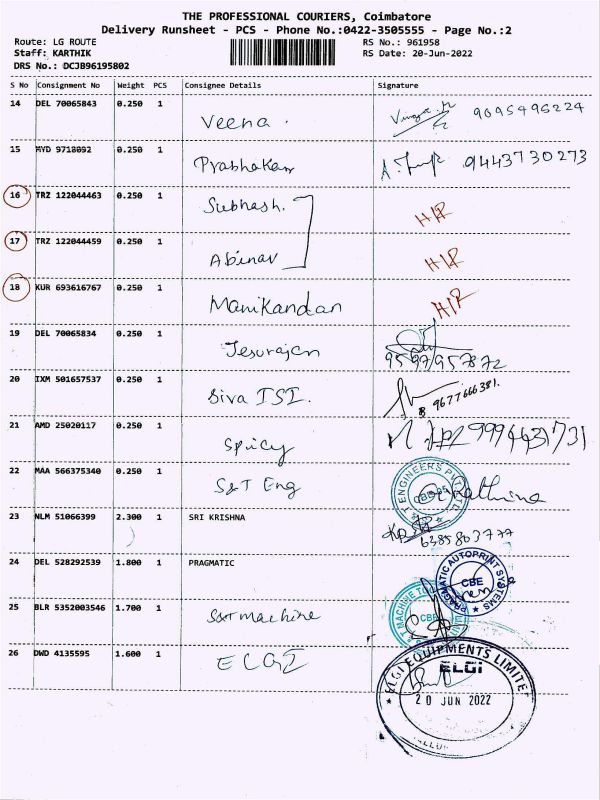 THE PROFESSIONAL COURIERS, Coimbatore
Delivery Runsheet - PCS - Phone No.:0422-3505555 - Page No.:2
Route: LG ROUTE RS No.: 961958
Staff: KARTHIK RS Date: 20-Jun-2022
DRS No.: DCJB96195802
S No Consignment No Weight PCS Consignee Details Signature
14 DEL 70065843 0.250 1 Veena. 9095496224
15 MYD 9718092 0.250 1 Prabhakan 9443730273
16 TRZ 122044463 0.250 1 Subhash. H/R
17 TRZ 122044459 0.250 1 Abinav H/R
18 KUR 693616767 0.250 1 Manikandan H/R
19 DEL 70065834 0.250 1 Jesurajan 9597957872
20 IXM 501657537 0.250 1 Siva ISI. 9677666381.
21 AMD 25020117 0.250 1 Spicy
22 MAA 566375340 0.250 1 S&T Eng
23 NLM 51066399 2.300 1 SRI KRISHNA 6385803777
24 DEL 528292539 1.800 1 PRAGMATIC
PRAGMATIC AUTOPRINT SYSTEMS
CBE
25 BLR 5352003546 1.700 1 S&T machine
CBE
26 DWD 4135595 1.600 1 ELGI
ELGI EQUIPMENTS LIMITED
ELGI
20 JUN 2022